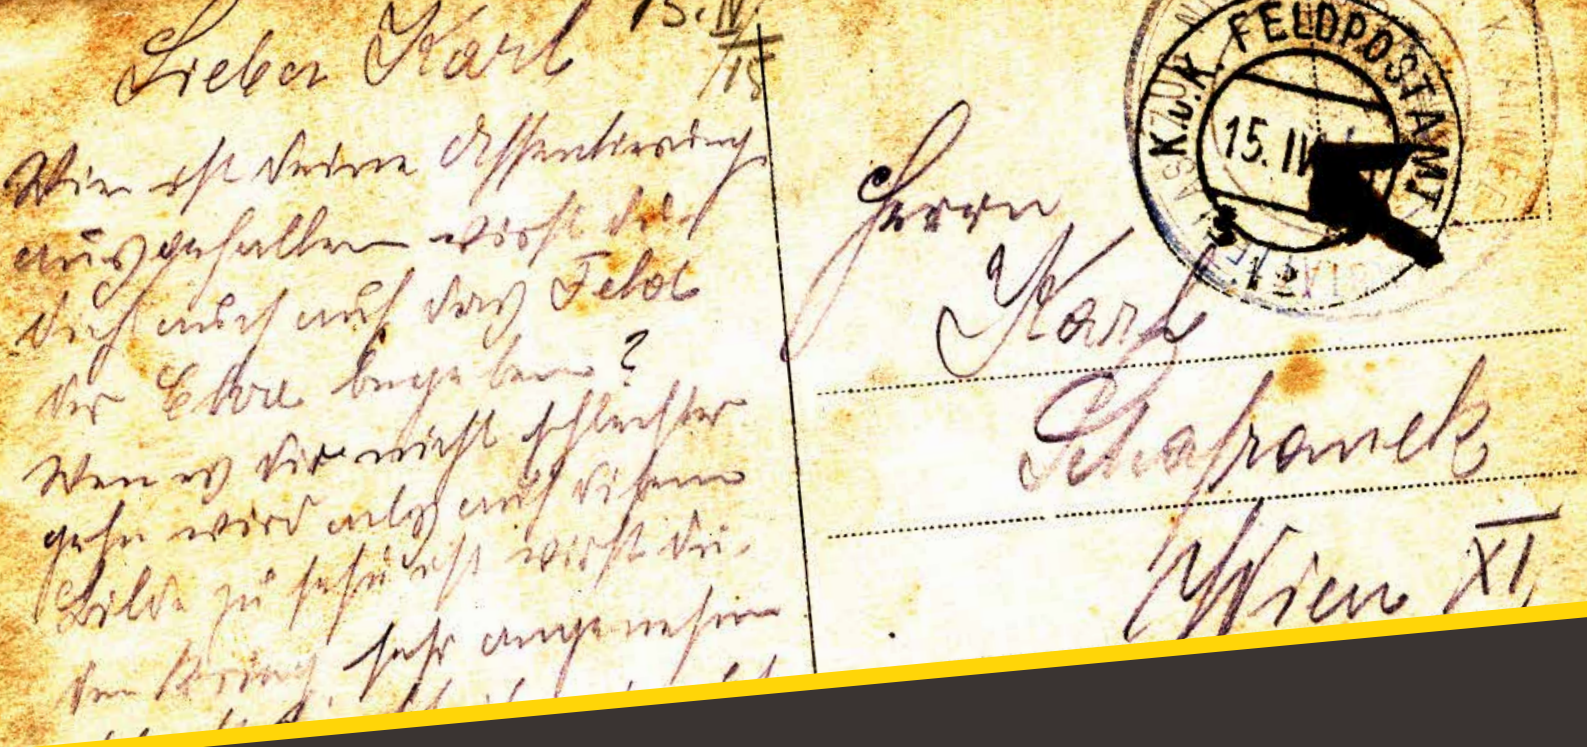 15.IV.
/18
Lieber Karl
Wie ist deine Assentierung
ausgefallen wirst du
dich auch auf das Feld
der Ehre begeben?
Wen es dir nicht schlechter
gehn wird als auf disem
Bilde zu sehn ist wirst du
den Krieg sehr angenehm
K.u.K. FELDPOSTAMT
15. IV
Herrn
Karl
Schafranek
Wien XI